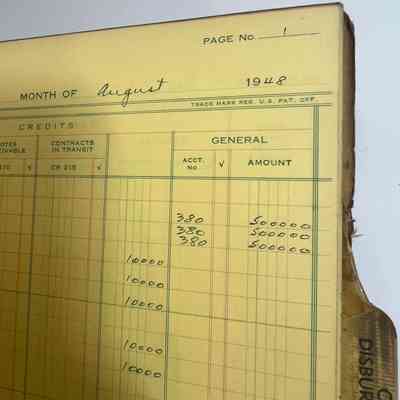 PAGE No. 1
MONTH OF August 1948
TRADE MARK REG. U.S. PAT. OFF.
CREDITS
CONTRACTS IN TRANSIT
GENERAL
CR 215 √
ACCT. No √ AMOUNT
380 500000
380 500000
380 500000
10000
10000
10000
10000
10000